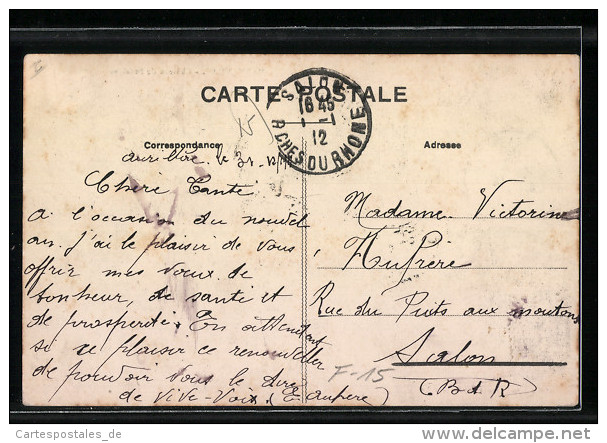 CARTE POSTALE
SALON
16 45
1 - 1
12
BCHES DU RHONE
Correspondance
Adresse
le 31-12-11
Chère Tante
A l'occasion du nouvel
an. J'ai le plaisir de vous
offrir mes voeux de
bonheur, de santé et
de prospérité. En attendant
si ce plaisir ce renouveller
de pouvoir vous le dire
de Vive-Voix.
Madame Victorine
Rue du Puits aux moutons
Salon
(B d R)
F-15
Cartespostales_de
www.delcampe.net